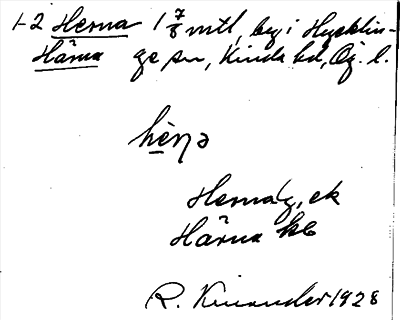 1-2 Herna 1 7/8 mtl, by i Hycklin-
Härna ge sn, Kinda hd, Ög. l.
hèṇə
Herna/g, ek
Härna kb
R. Kinander 1928